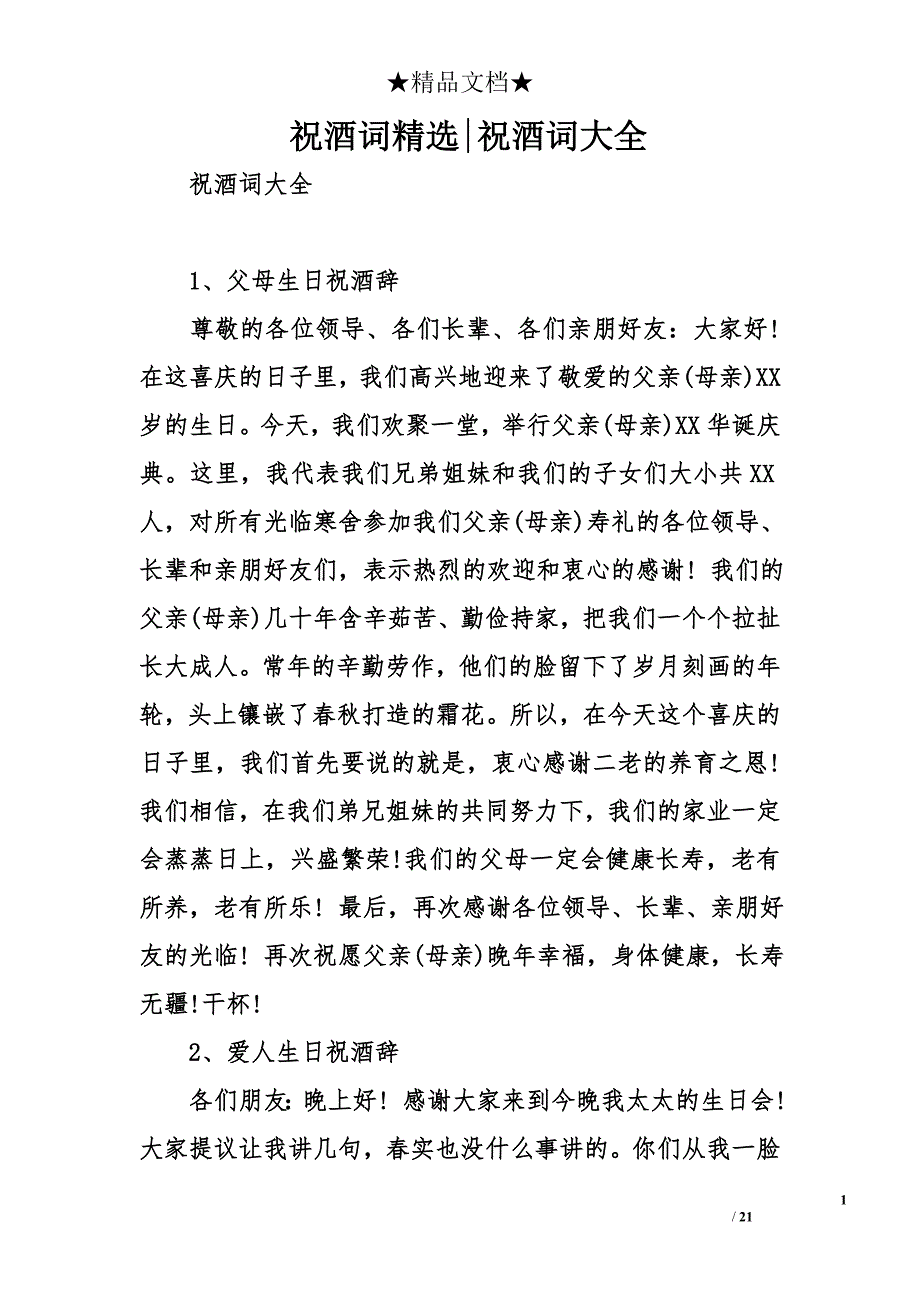 ★精品文档★
祝酒词精选|祝酒词大全
祝酒词大全
1、父母生日祝酒辞
尊敬的各位领导、各们长辈、各们亲朋好友：大家好!
在这喜庆的日子里，我们高兴地迎来了敬爱的父亲(母亲)XX
岁的生日。今天，我们欢聚一堂，举行父亲(母亲)XX 华诞庆
典。这里，我代表我们兄弟姐妹和我们的子女们大小共XX
人，对所有光临寒舍参加我们父亲(母亲)寿礼的各位领导、
长辈和亲朋好友们，表示热烈的欢迎和衷心的感谢! 我们的
父亲(母亲)几十年含辛茹苦、勤俭持家，把我们一个个拉扯
长大成人。常年的辛勤劳作，他们的脸留下了岁月刻画的年
轮，头上镶嵌了春秋打造的霜花。所以，在今天这个喜庆的
日子里，我们首先要说的就是，衷心感谢二老的养育之恩!
我们相信，在我们弟兄姐妹的共同努力下，我们的家业一定
会蒸蒸日上，兴盛繁荣!我们的父母一定会健康长寿，老有
所养，老有所乐! 最后，再次感谢各位领导、长辈、亲朋好
友的光临! 再次祝愿父亲(母亲)晚年幸福，身体健康，长寿
无疆!干杯!
2、爱人生日祝酒辞
各们朋友：晚上好! 感谢大家来到今晚我太太的生日会!
大家提议让我讲几句，春实也没什么事讲的。你们从我一脸
1
/ 21